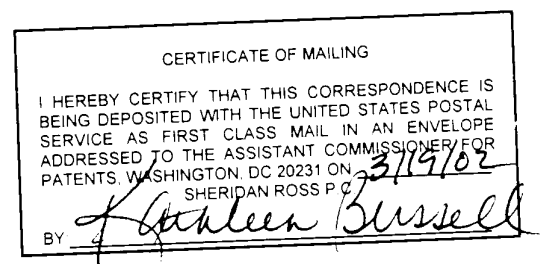 CERTIFICATE OF MAILING
I HEREBY CERTIFY THAT THIS CORRESPONDENCE IS
BEING DEPOSITED WITH THE UNITED STATES POSTAL
SERVICE AS FIRST CLASS MAIL IN AN ENVELOPE
ADDRESSED TO THE ASSISTANT COMMISSIONER FOR
PATENTS, WASHINGTON, DC 20231 ON 3/19/02
SHERIDAN ROSS P C
BY: Kathleen Bussell